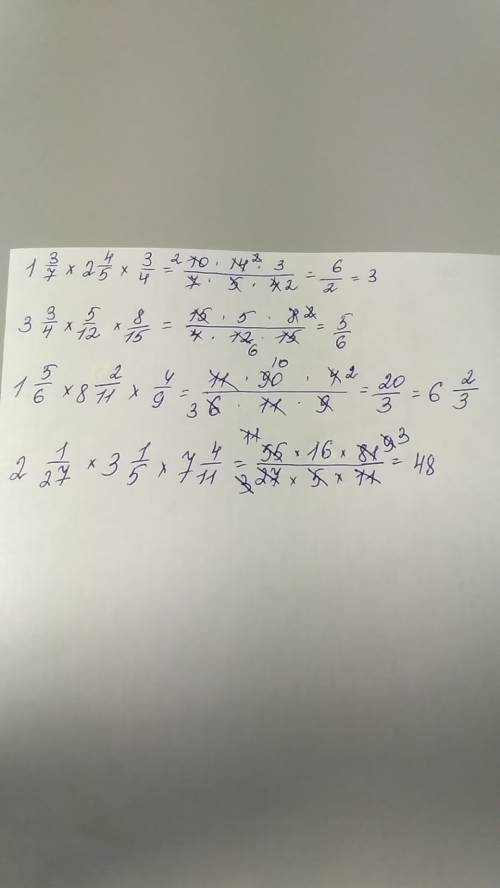 1 3/7 × 2 4/5 × 3/4 = 2 10 · 14 2 · 3 / 7 · 5 · 4 2 = 6/2 = 3
3 3/4 × 5/12 × 8/15 = 15 · 5 · 8 2 / 4 · 12 6 · 15 = 5/6
1 5/6 × 8 2/11 × 4/9 = 11 · 90 10 · 4 2 / 3 6 · 11 · 9 = 20/3 = 6 2/3
2 1/27 × 3 1/5 × 7 4/11 = 11 55 × 16 × 81 9 3 / 3 27 × 5 × 11 = 48